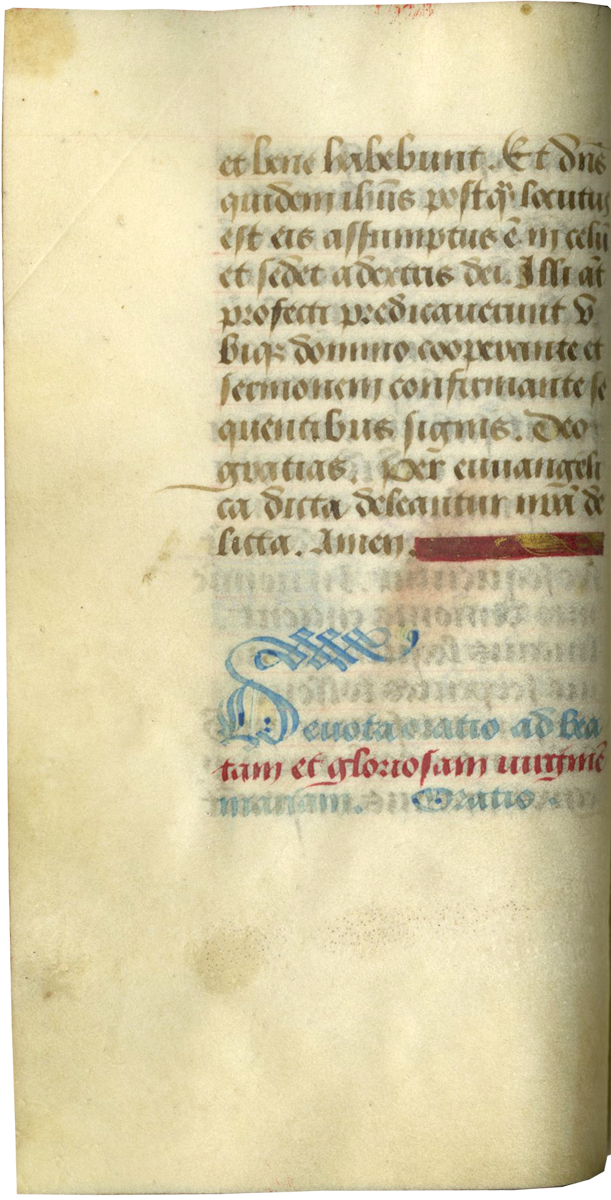 et bene habebunt. Et dn̄s
quidem ihūs postq̄ locutus
est eis assumptus ē in celū
et sedet a dextris dei. Illi aūt
profecti predicauerunt v
biqꝫ domino cooperante et
sermonem confirmante se
quentibus signis. Deo
gratias. Per euuangeli
ca dicta deleantur nr̄a de
licta. Amen.
Deuota oratio ad bea
tam et gloriosam uirginē
mariam. Oratio.